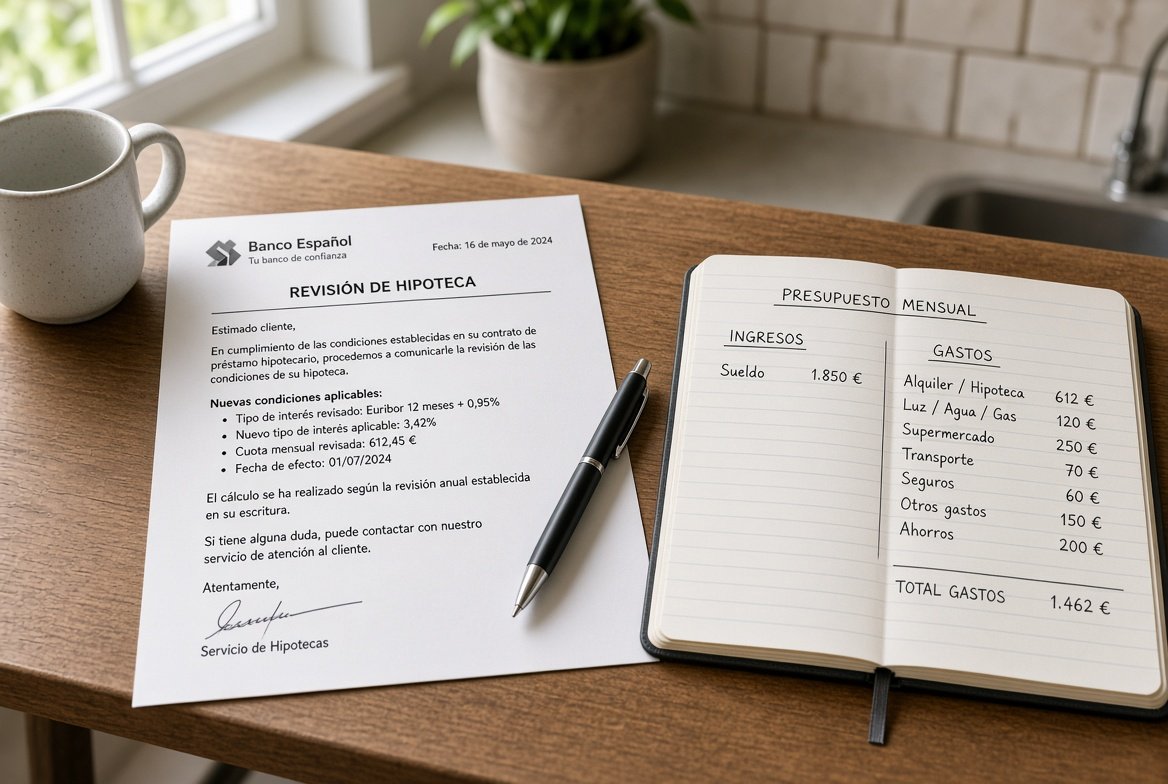 Banco Español
Tu banco de confianza
Fecha: 16 de mayo de 2024
REVISIÓN DE HIPOTECA
Estimado cliente,
En cumplimiento de las condiciones establecidas en su contrato de
préstamo hipotecario, procedemos a comunicarle la revisión de las
condiciones de su hipoteca.
Nuevas condiciones aplicables:
• Tipo de interés revisado: Euribor 12 meses + 0,95%
• Nuevo tipo de interés aplicable: 3,42%
• Cuota mensual revisada: 612,45 €
• Fecha de efecto: 01/07/2024
El cálculo se ha realizado según la revisión anual establecida
en su escritura.
Si tiene alguna duda, puede contactar con nuestro
servicio de atención al cliente.
Atentamente,
Servicio de Hipotecas
PRESUPUESTO MENSUAL
INGRESOS
Sueldo 1.850 €
GASTOS
Alquiler / Hipoteca 612 €
Luz / Agua / Gas 120 €
Supermercado 250 €
Transporte 70 €
Seguros 60 €
Otros gastos 150 €
Ahorros 200 €
TOTAL GASTOS 1.462 €